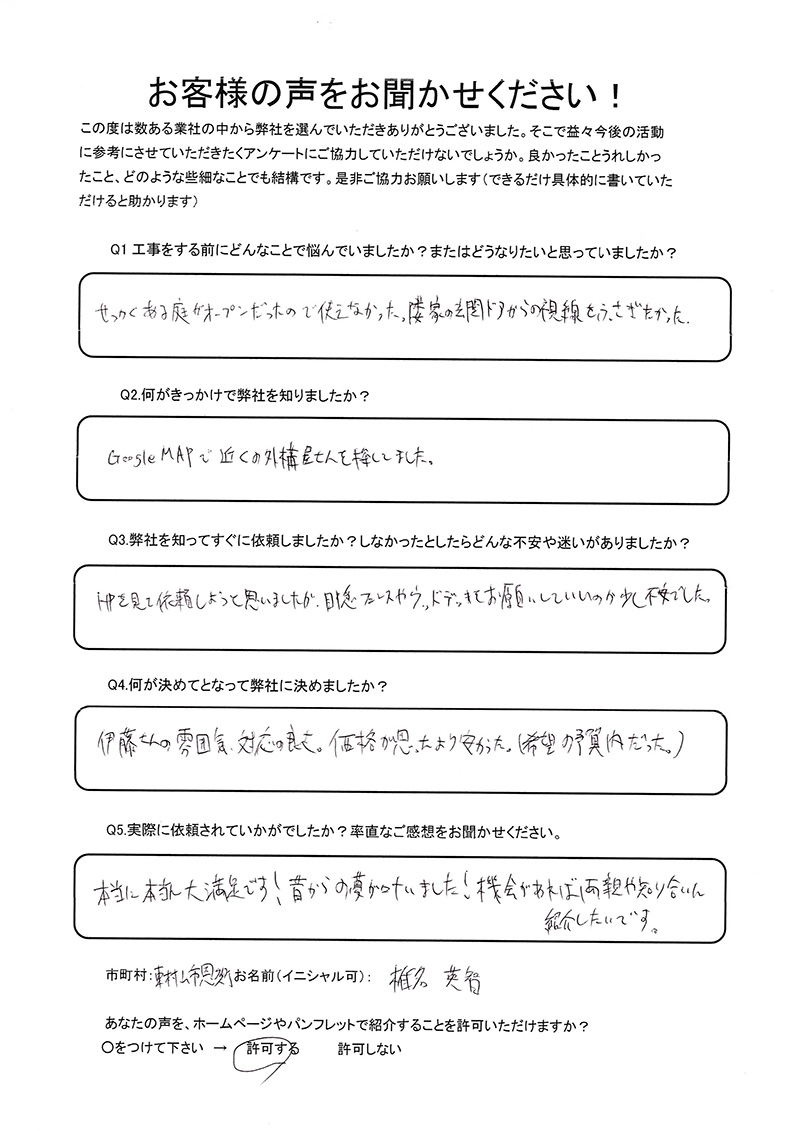 お客様の声をお聞かせください！
この度は数ある業社の中から弊社を選んでいただきありがとうございました。そこで益々今後の活動
に参考にさせていただきたくアンケートにご協力していただけないでしょうか。良かったことうれしかっ
たこと、どのような些細なことでも結構です。是非ご協力お願いします（できるだけ具体的に書いていた
だけると助かります）
Q1 工事をする前にどんなことで悩んでいましたか？またはどうなりたいと思っていましたか？
せっかくある庭がオープンだったので使えなかった。隣家の玄関ドアからの視線をふさぎたかった.
Q2.何がきっかけで弊社を知りましたか？
Google MAPで近くの外構屋さんを探してました。
Q3.弊社を知ってすぐに依頼しましたか？しなかったとしたらどんな不安や迷いがありましたか？
HPを見て依頼しようと思いましたが、目隠しフェンスやウッドデッキをお願いしていいのか少し不安でした。
Q4.何が決めてとなって弊社に決めましたか？
伊藤さんの雰囲気、対応の良さ。価格が思ったより安かった。(希望の予算内だった。)
Q5.実際に依頼されていかがでしたか？率直なご感想をお聞かせください。
本当に本当に大満足です！昔からの夢が叶いました！機会があれば両親や知り合いに
紹介したいです。
市町村：東村山市恩多町お名前（イニシャル可）： 椎名 英智
あなたの声を、ホームページやパンフレットで紹介することを許可いただけますか？
○をつけて下さい → 許可する 許可しない